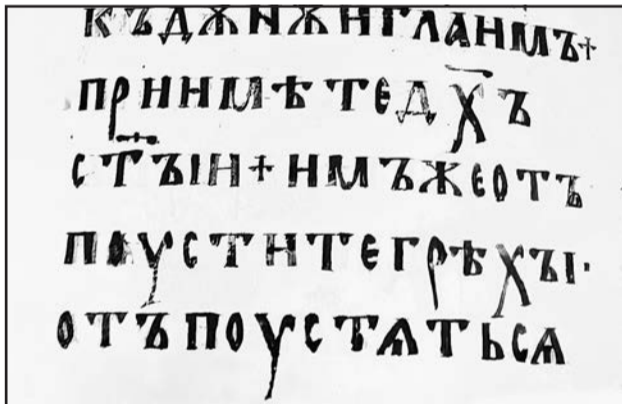 въдѫнѫиглаимъ+
приимѣтедх҃ъ
ст҃ъіи+имъжеотъ
поуститегрѣхъі·
отъпоустѧтьсѧ